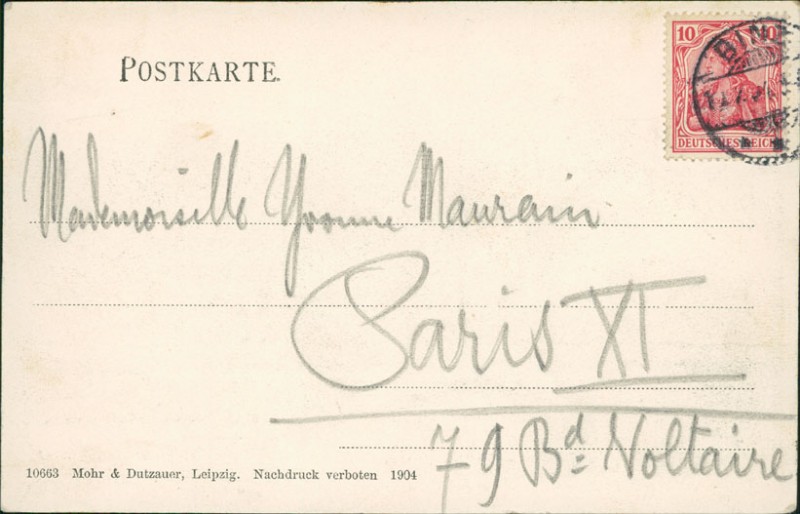 POSTKARTE.
10
DEUTSCHES REICH
Mademoiselle Yvonne Maurain
Paris XI
79 Bd Voltaire
10663 Mohr & Dutzauer, Leipzig. Nachdruck verboten 1904